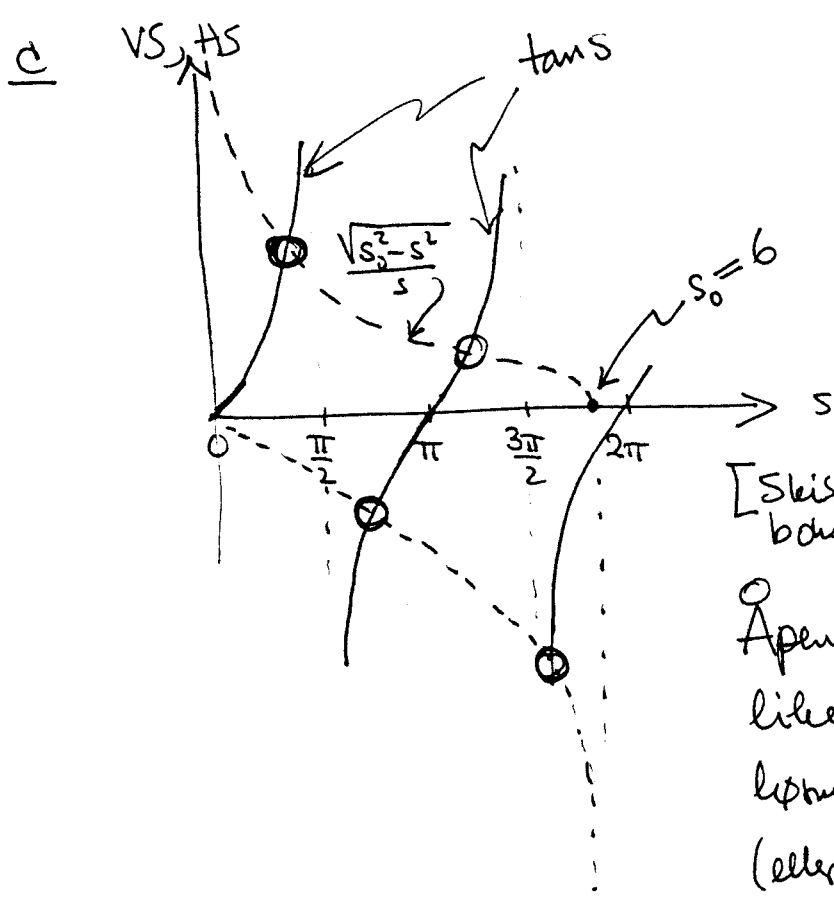 c
VS, HS
tan s
√(s₀² − s²) / s
s₀ = 6
s
0
π/2
π
3π/2
2π
[Skis
Åpen
like
(eller